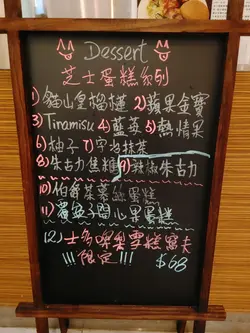 Dessert
芝士蛋糕系列
1) 貓山皇榴槤 2) 蘋果金寶
3) Tiramisu 4) 藍莓 5) 熱情果
6) 柚子 7) 宇治抹茶
8) 朱古力焦糖 9) 辣椒朱古力
10) 伯爵茶慕絲蛋糕
11) 覆盆子開心果蛋糕
12) 士多啤梨雪糕窩夫
!!! 限定 !!! $68